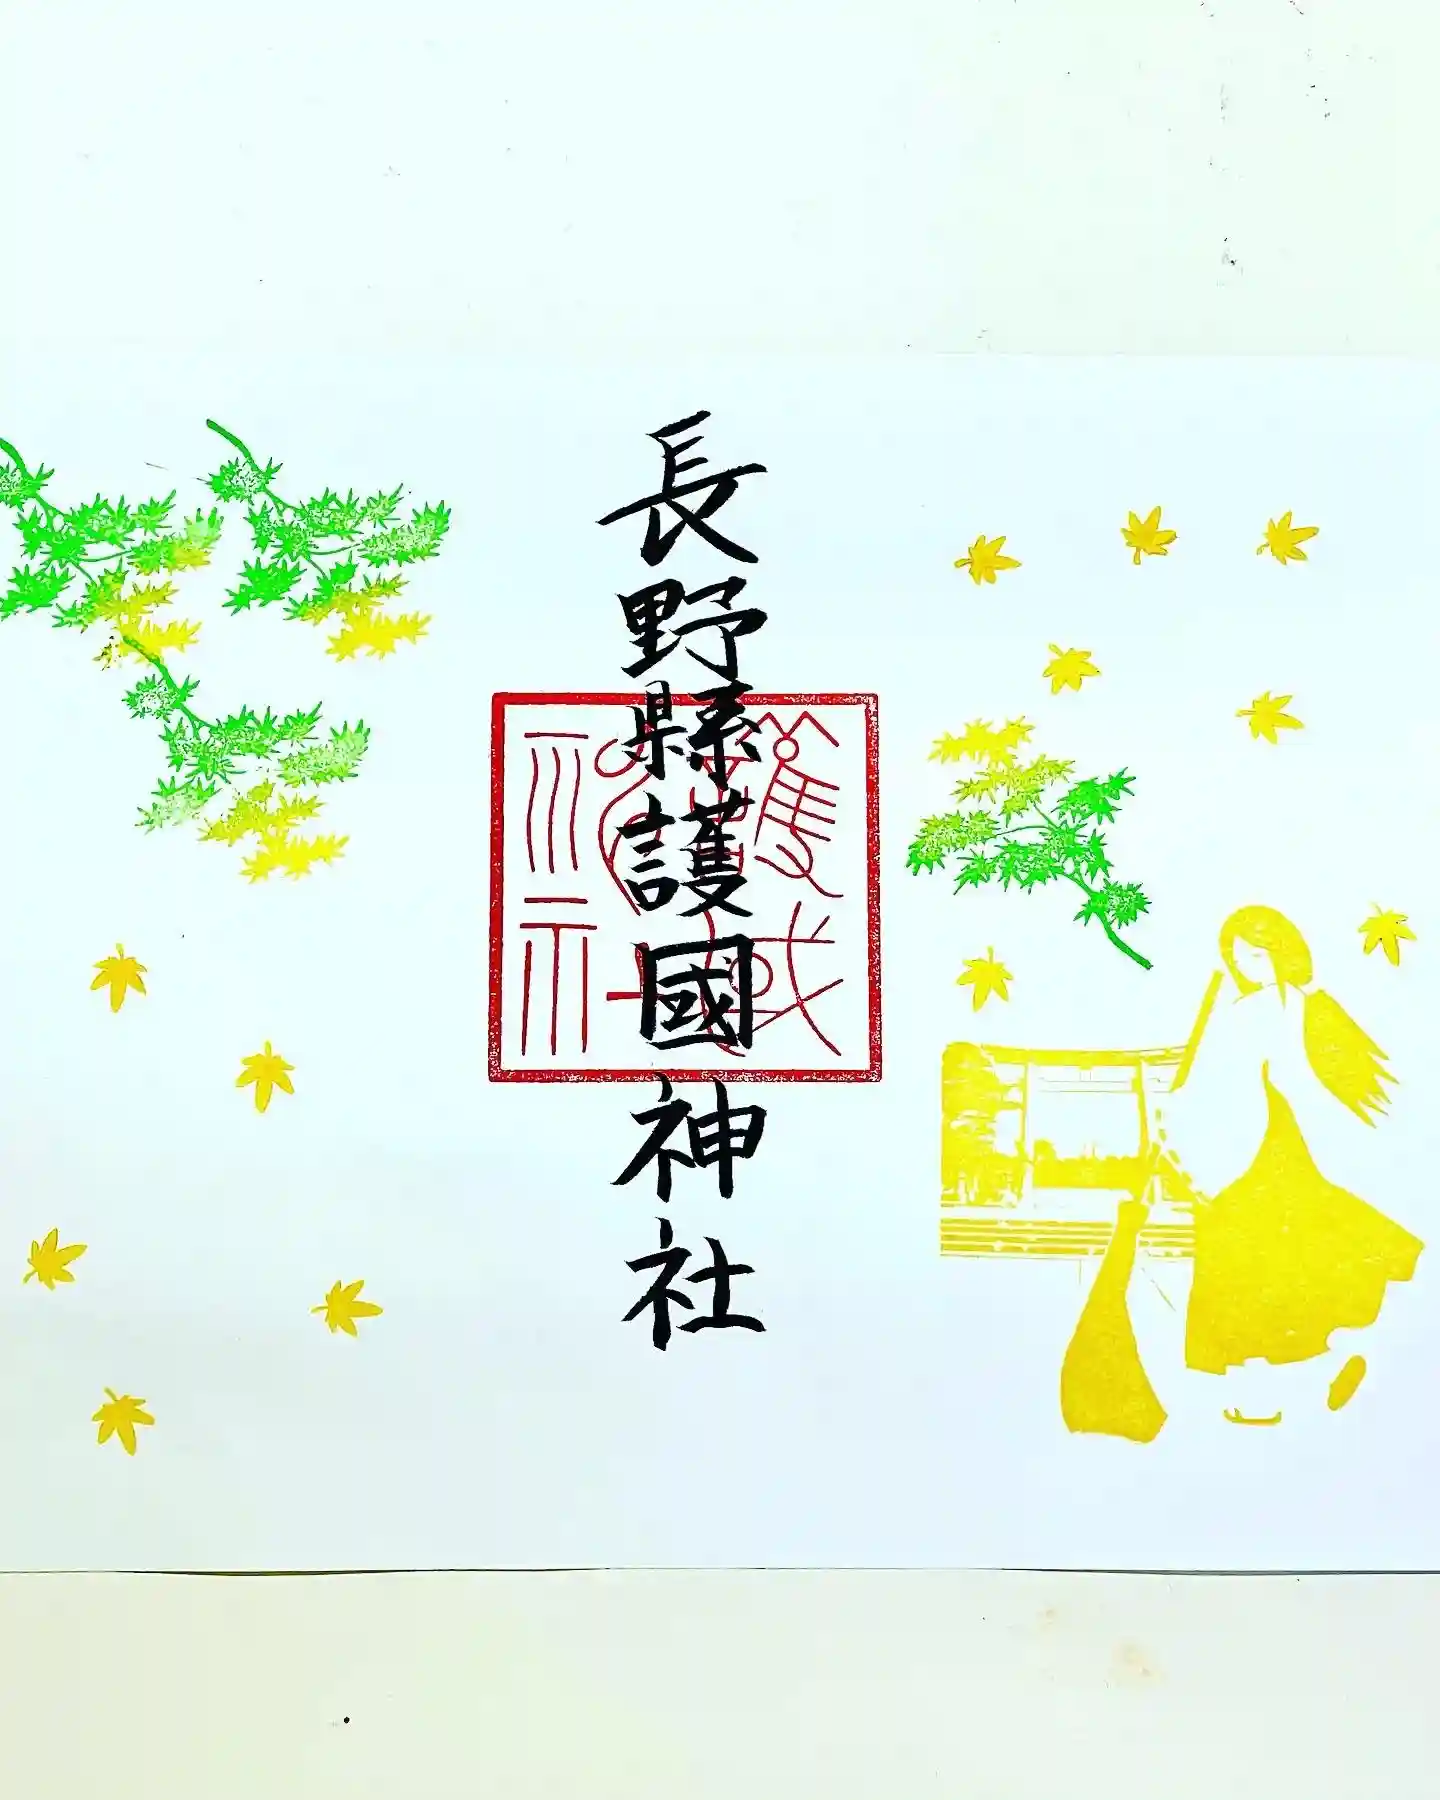 長野縣護國神社